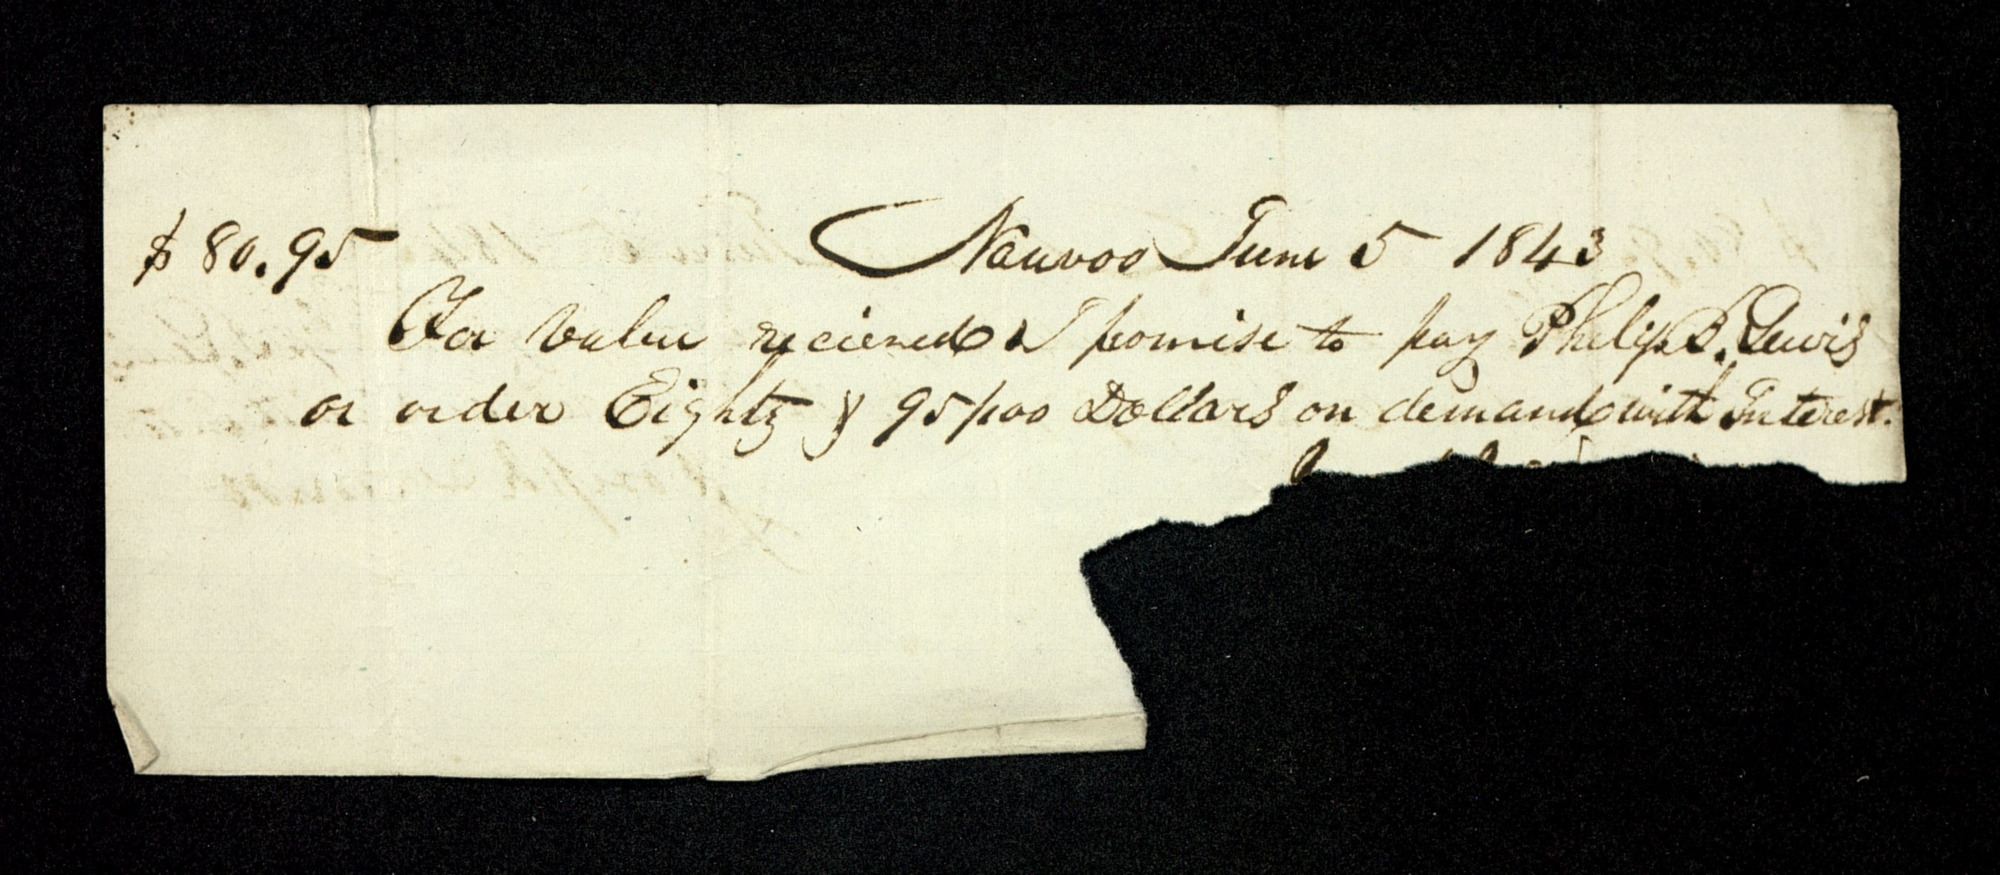 $80.95 Nauvoo June 5 1843
For value recieved I promise to pay Philip B. Lewis
or order Eighty & 95/100 Dollars on demand with Interest.